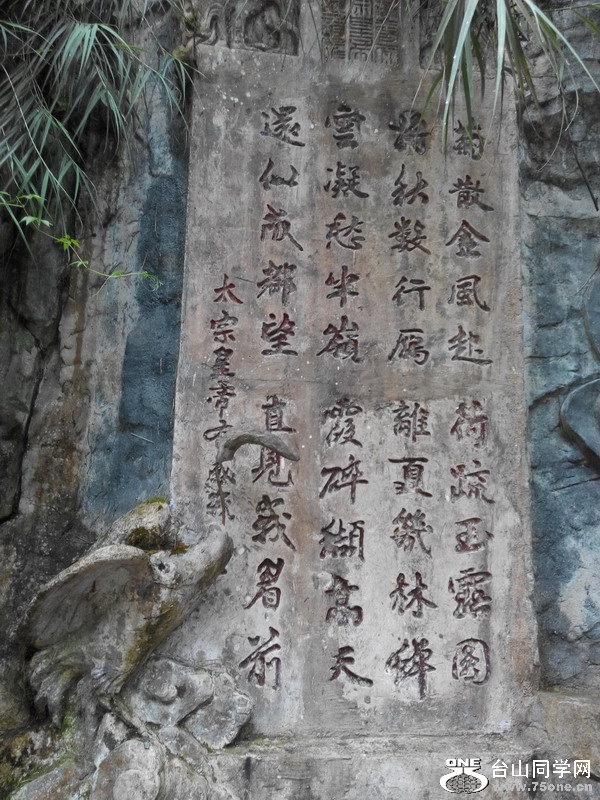 菊散金風起荷疏玉露圓
將秋數行鴈離夏幾林蟬
雲凝愁半嶺霞碎纈高天
還似成都望直見峨眉前
太宗皇帝
ONE 台山同学网
www.75one.cn